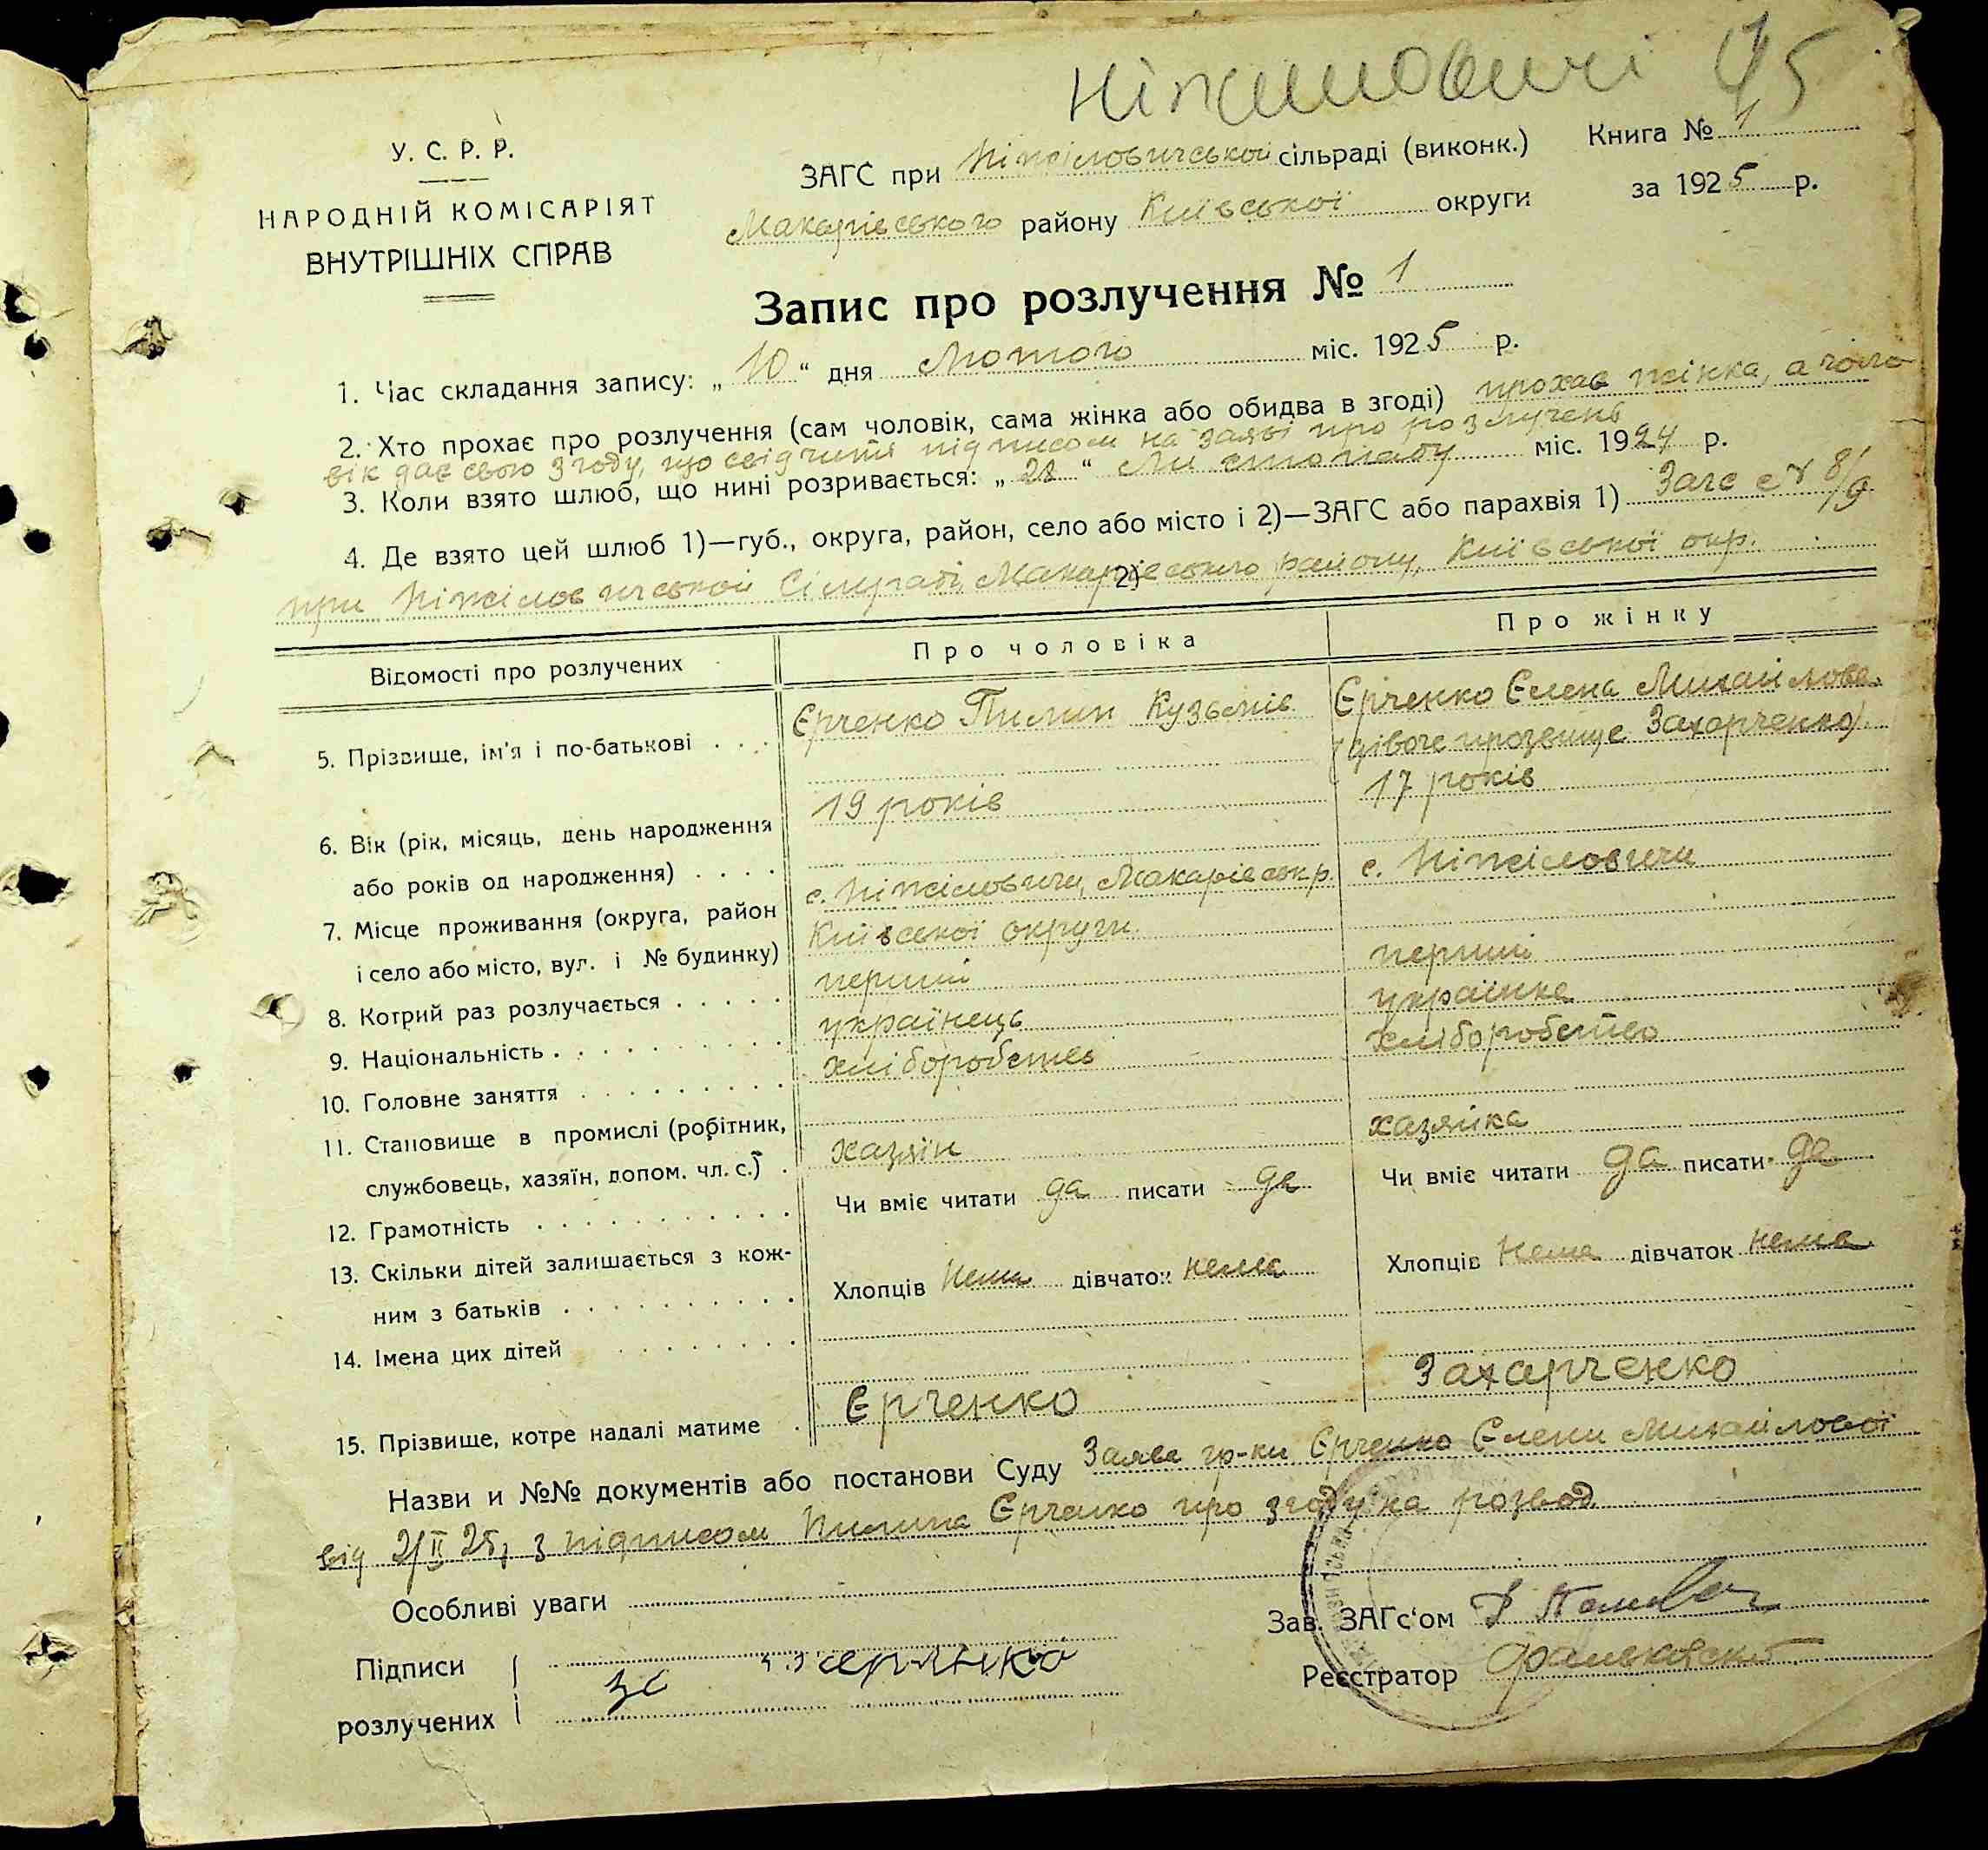 Ніжиловичі 45
У. С. Р. Р.
НАРОДНІЙ КОМІСАРІЯТ
ВНУТРІШНІХ СПРАВ
ЗАГС при Ніжіловичськой сільраді (виконк.) Книга № 1
Макарівського району Київської округи за 1925 р.
Запис про розлучення № 1
1. Час складання запису: „10“ дня Лютого міс. 1925 р.
2. Хто прохає про розлучення (сам чоловік, сама жінка або обидва в згоді) прохає жінка, а чоло
вік дає свою згоду, що свідчить підписом на заяві про розлучень
3. Коли взято шлюб, що нині розривається: „28“ Листопаду міс. 1924 р.
4. Де взято цей шлюб 1)—губ., округа, район, село або місто і 2)—ЗАГС або парахвія 1) Загс № 8/9
при Ніжіловичськой Сільраді, Макарівського району, Київської окр.
2)
Відомості про розлучених Про чоловіка Про жінку
5. Прізвище, ім'я і по-батькові . . . Єрченко Пилип Кузьмів Єрченко Єлена Михайлова
(дівоче прозвище Захарченко)
6. Вік (рік, місяць, день народження
або років од народження) . . . . 19 років 17 років
7. Місце проживання (округа, район
і село або місто, вул. і № будинку) с. Ніжіловичи, Макарівськ р. с. Ніжіловичи
Київської округи
8. Котрий раз розлучається . . . . . перший перший
9. Національність . . . . . . . . . . українець українка
10. Головне заняття . . . . . . . . хліборобство хліборобство
11. Становище в промислі (робітник,
службовець, хазяїн, допом. чл. с.) . хазяїн хазяйка
12. Грамотність . . . . . . . . . . . Чи вміє читати да писати да Чи вміє читати да писати да
13. Скільки дітей залишається з кож-
ним з батьків . . . . . . . . . . Хлопців нема дівчаток нема Хлопців нема дівчаток нема
14. Імена цих дітей . . . . . . . .
15. Прізвище, котре надалі матиме . Єрченко Захарченко
Назви и №№ документів або постанови Суду Заява гр-ки Єрченко Єлени Михайлової
від 2/II 25, з підписом Пилипа Єрченко про згоду на розвод
Особливі уваги
Підписи
розлучених
Зав. ЗАГс'ом
Реєстратор